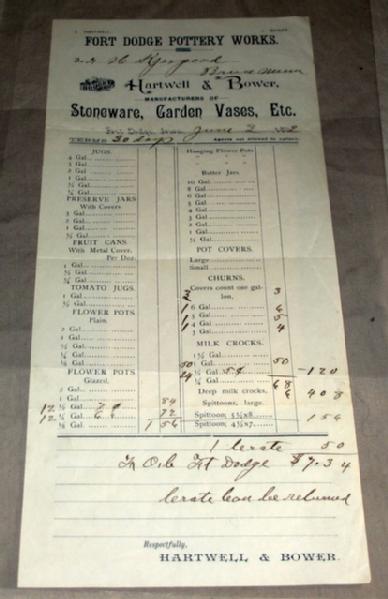 FORT DODGE POTTERY WORKS.
Hartwell & Bower,
MANUFACTURERS OF
Stoneware, Garden Vases, Etc.
Fort Dodge, Iowa, June 2
TERMS 30 days
JUGS.
4 Gal.
3 Gal.
2 Gal.
1 Gal.
½ Gal.
¼ Gal.
PRESERVE JARS
With Covers
3 Gal.
2 Gal.
1 Gal.
½ Gal.
FRUIT CANS.
With Metal Cover.
Per Doz.
1 Gal.
½ Gal.
TOMATO JUGS.
1 Gal.
½ Gal.
FLOWER POTS.
Plain.
2 Gal.
1 Gal.
½ Gal.
¼ Gal.
FLOWER POTS
Glazed.
2 Gal.
1 Gal.
12 ½ Gal. 7¢ 84
12 ¼ Gal. 6¢ 72
1 56
Hanging Flower Pots
Butter Jars
10 Gal.
8 Gal.
6 Gal.
5 Gal.
4 Gal.
3 Gal.
2 Gal.
1 Gal.
½ Gal.
POT COVERS.
Large
Small
CHURNS.
Covers count one gallon. 3
6 Gal. 6
5 Gal. 5
4 Gal. 4
3 Gal.
MILK CROCKS.
1½ Gal.
50 1 Gal. 50
24 ½ Gal. 5¢ 120
68
Deep milk crocks, 6 408
Spittoons, large.
Spittoon 5½x8 156
Spittoon, 4½x7.
1 Crate 50
F.O.b. Ft Dodge $7.34
Crate Can be returned
Respectfully,
HARTWELL & BOWER.